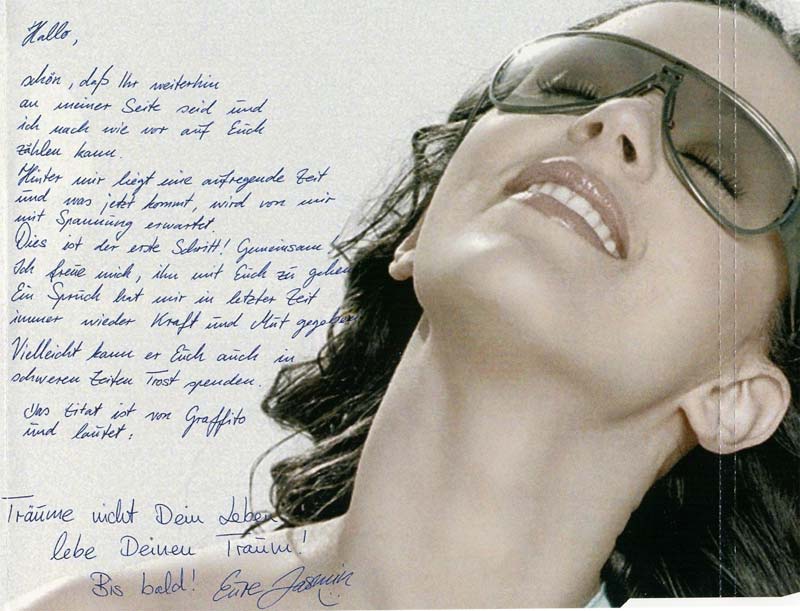 Hallo,
schön, daß Ihr weiterhin
an meiner Seite seid und
ich nach wie vor auf Euch
zählen kann.
Hinter mir liegt eine aufregende Zeit
und was jetzt kommt, wird von mir
mit Spannung erwartet.
Dies ist der erste Schritt! Gemeinsam!
Ich freue mich, ihn mit Euch zu gehen
Ein Spruch hat mir in letzter Zeit
immer wieder Kraft und Mut gegeben
Vielleicht kann er Euch auch in
schweren Zeiten Trost spenden.
Das Zitat ist von Graffito
und lautet:
Träume nicht Dein Leben
lebe Deinen Traum!
Bis bald! Eure Jasmin